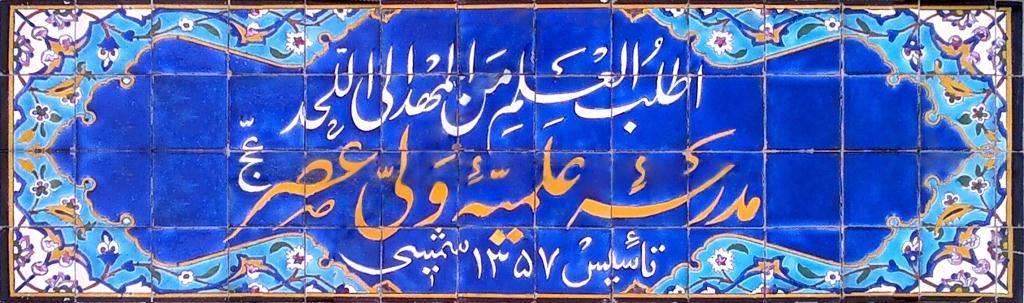 اطلب العلم من المهد الی اللحد
مدرسهٔ علمیّهٔ ولیّ عصر عجّ
تأسیس ۱۳۵۷ شمسی